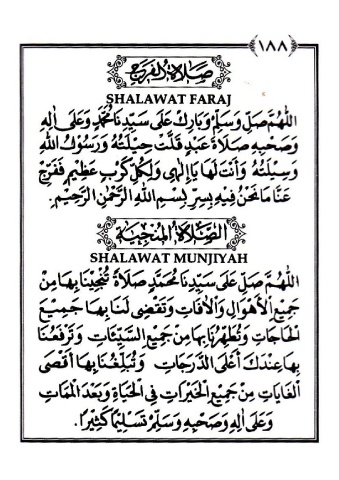 ١٨٨
صلاة الفرج
SHALAWAT FARAJ
اَللّٰهُمَّ صَلِّ وَسَلِّمْ وَبَارِكْ عَلَى سَيِّدِنَا مُحَمَّدٍ وَعَلَى اٰلِهِ
وَصَحْبِهِ صَلَاةَ عَبْدٍ قَلَّتْ حِيْلَتُهُ وَرَسُوْلُ اللهِ
وَسِيْلَتُهُ وَأَنْتَ لَهَا يَا اِلٰهِى وَلِكُلِّ كَرْبٍ عَظِيْمٍ فَفَرِّجْ
عَنَّا مَا نَحْنُ فِيْهِ بِسِرِّ بِسْمِ اللهِ الرَّحْمٰنِ الرَّحِيْمِ.
الصلاة المنجية
SHALAWAT MUNJIYAH
اَللّٰهُمَّ صَلِّ عَلَى سَيِّدِنَا مُحَمَّدٍ صَلَاةً تُنْجِيْنَا بِهَا مِنْ
جَمِيْعِ الْأَهْوَالِ وَالْاٰفَاتِ وَتَقْضِى لَنَا بِهَا جَمِيْعَ
الْحَاجَاتِ وَتُطَهِّرُنَا بِهَا مِنْ جَمِيْعِ السَّيِّئَاتِ وَتَرْفَعُنَا
بِهَا عِنْدَكَ أَعْلَى الدَّرَجَاتِ وَتُبَلِّغُنَا بِهَا أَقْصَى
الْغَايَاتِ مِنْ جَمِيْعِ الْخَيْرَاتِ فِى الْحَيَاةِ وَبَعْدَ الْمَمَاتِ
وَعَلَى اٰلِهِ وَصَحْبِهِ وَسَلِّمْ تَسْلِيْمًا كَثِيْرًا.